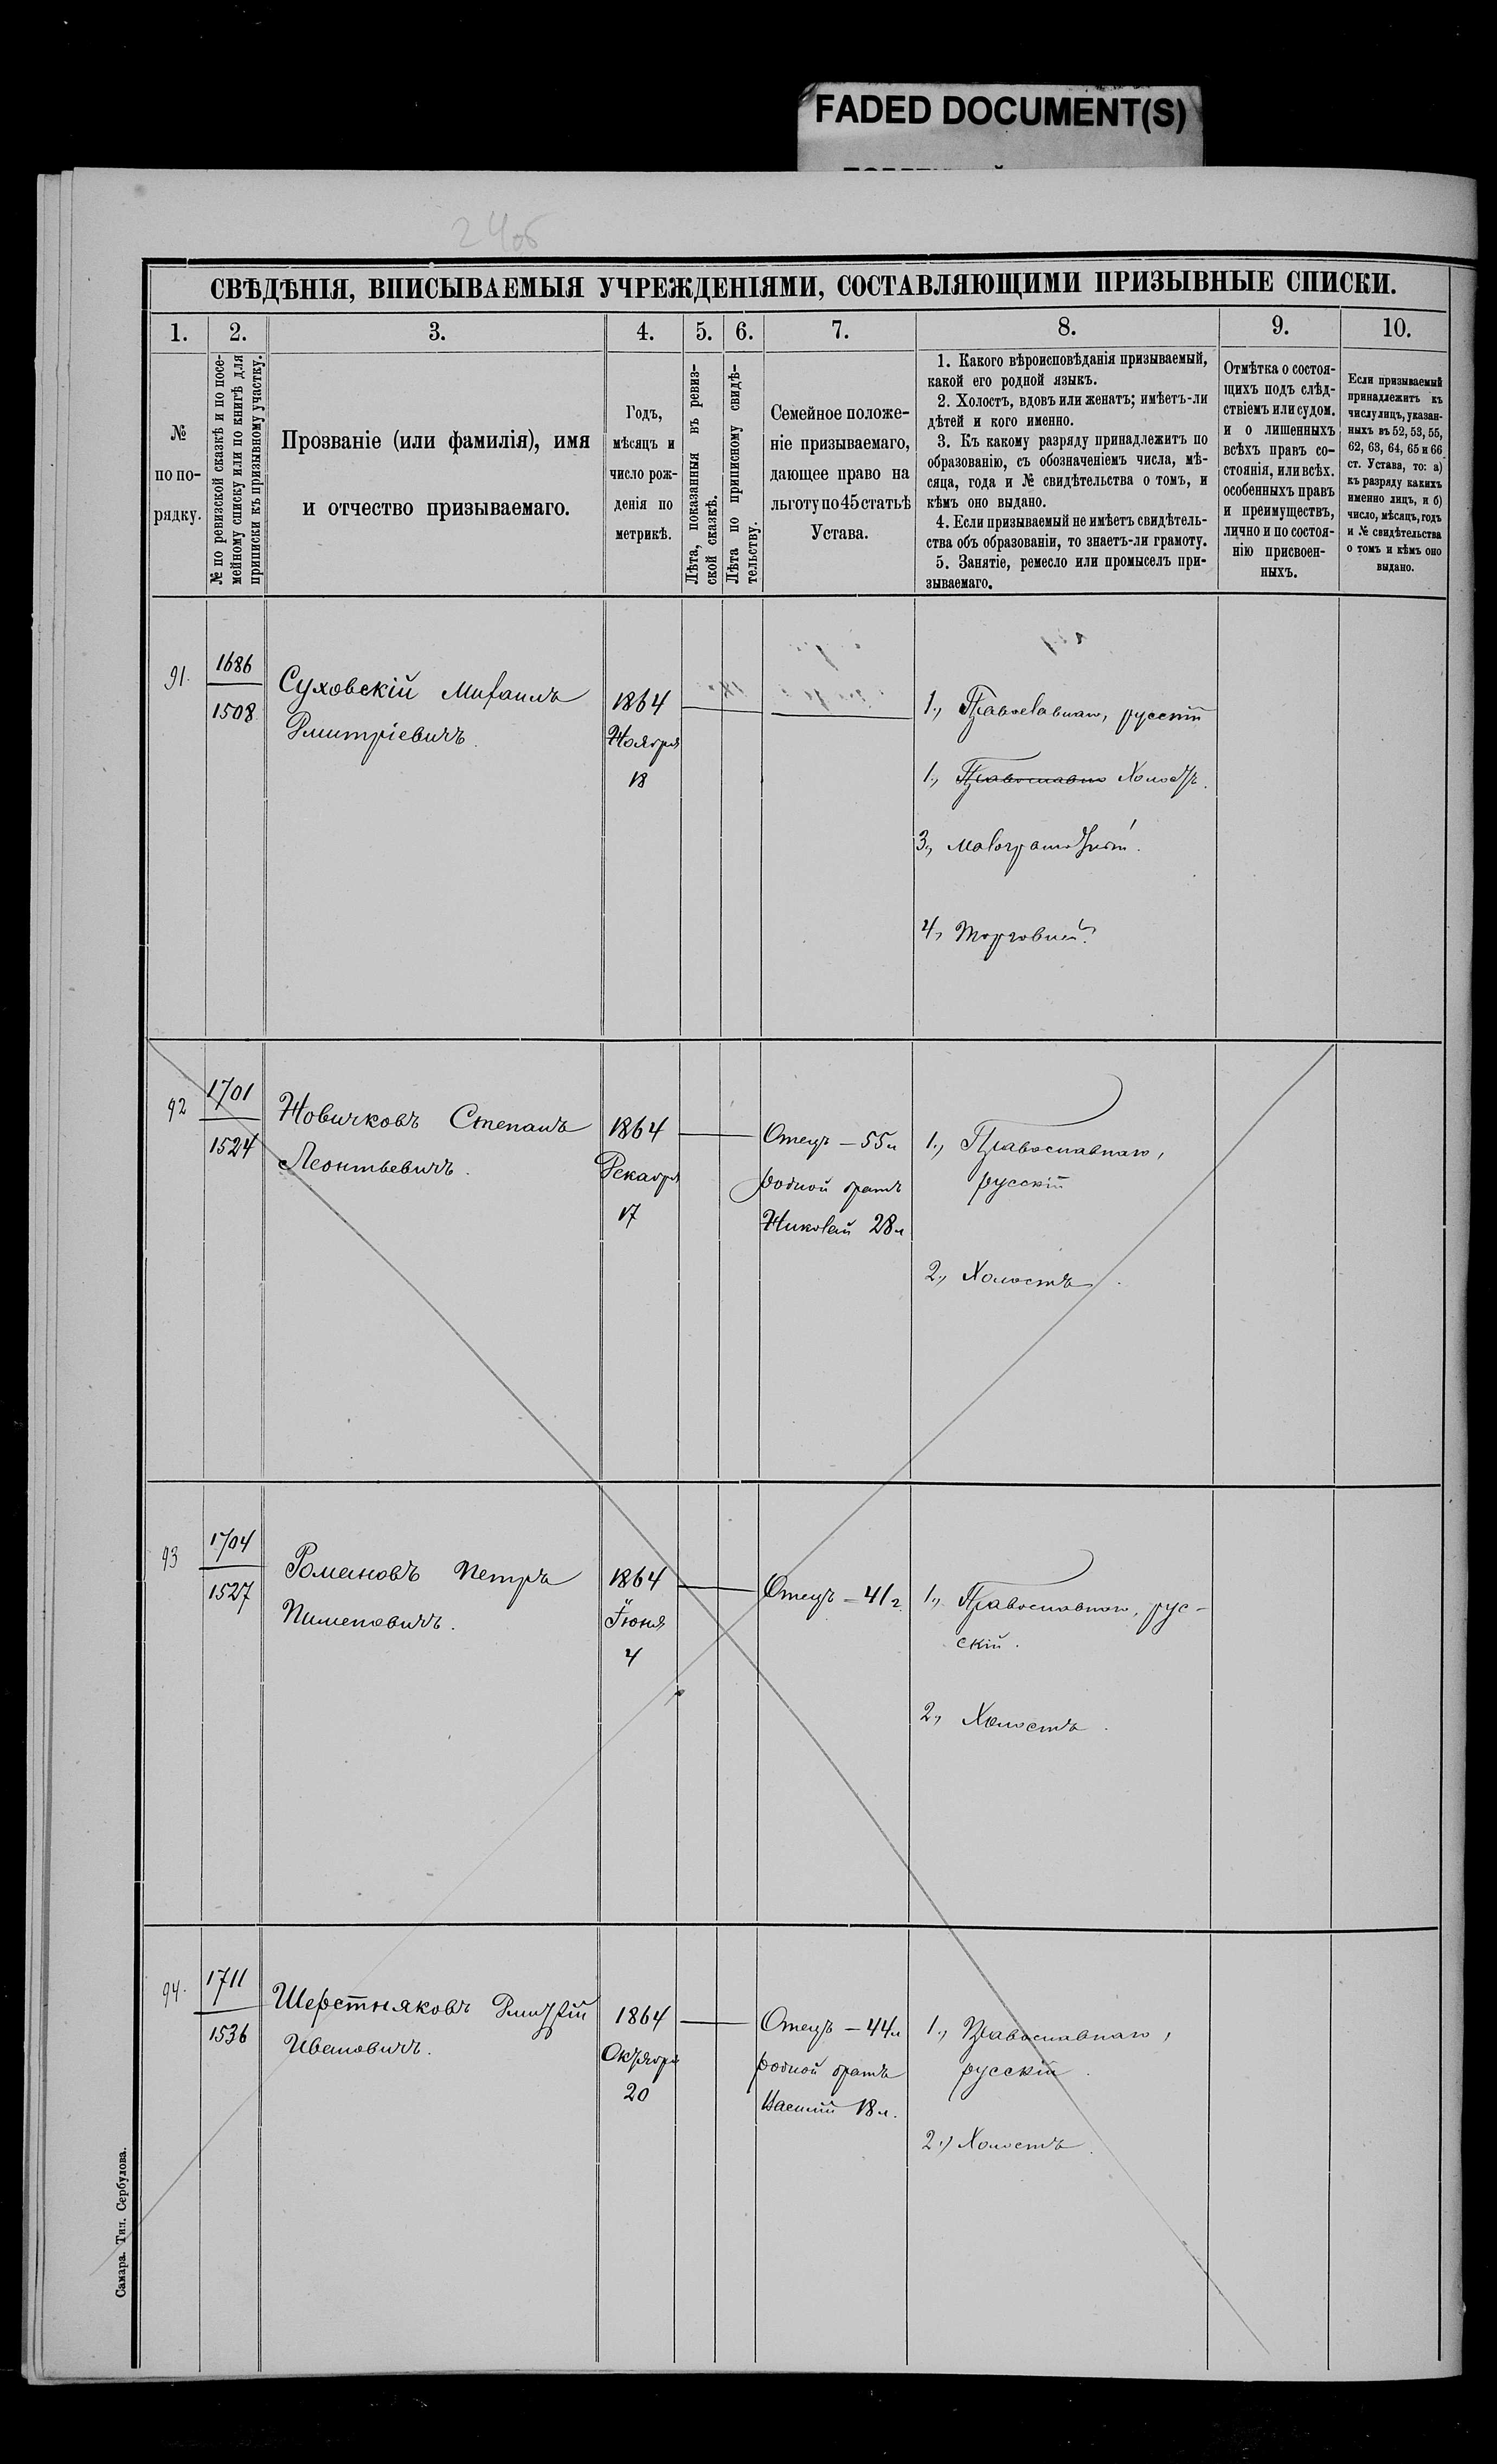 FADED DOCUMENT(S)
24об
СВѢДѢНІЯ, ВПИСЫВАЕМЫЯ УЧРЕЖДЕНІЯМИ, СОСТАВЛЯЮЩИМИ ПРИЗЫВНЫЕ СПИСКИ.
1.
2.
3.
4.
5.
6.
7.
8.
9.
10.
№
по по-
рядку.
№ по ревизской сказкѣ и по посе-
мейному списку или по книгѣ для
приписки къ призывному участку.
Прозваніе (или фамилія), имя
и отчество призываемаго.
Годъ,
мѣсяцъ и
число рож-
денія по
метрикѣ.
Лѣта, показанныя въ ревиз-
ской сказкѣ.
Лѣта по приписному свидѣ-
тельству.
Семейное положе-
ніе призываемаго,
дающее право на
льготу по 45 статьѣ
Устава.
1. Какого вѣроисповѣданія призываемый,
какой его родной языкъ.
2. Холостъ, вдовъ или женатъ; имѣетъ-ли
дѣтей и кого именно.
3. Къ какому разряду принадлежитъ по
образованію, съ обозначеніемъ числа, мѣ-
сяца, года и № свидѣтельства о томъ, и
кѣмъ оно выдано.
4. Если призываемый не имѣетъ свидѣтель-
ства объ образованіи, то знаетъ-ли грамоту.
5. Занятіе, ремесло или промыселъ при-
зываемаго.
Отмѣтка о состоя-
щихъ подъ слѣд-
ствіемъ или судом.
и о лишенныхъ
всѣхъ правъ со-
стоянія, или всѣх.
особенныхъ правъ
и преимуществъ,
лично и по состоя-
нію присвоен-
ныхъ.
Если призываемый
принадлежитъ къ
числу лицъ, указан-
ныхъ въ 52, 53, 55,
62, 63, 64, 65 и 66
ст. Устава, то: а)
къ разряду какихъ
именно лицъ, и б)
число, мѣсяцъ, годъ
и № свидѣтельства
о томъ и кѣмъ оно
выдано.
91.
1686
1508
Суховскій Михаилъ
Дмитріевичъ.
1864
Ноября
18
1., Православнаго, русскій
1., Православно Холостъ.
3., Малограмотный.
4, Торговлей.
92
1701
1524
Новичковъ Степанъ
Леонтьевичъ.
1864
Декабря
17
Отецъ — 55 л
родной братъ
Николай 28 л
1., Православнаго,
русскій
2., Холостъ.
93
1704
1527
Романовъ Петръ
Пименовичъ.
1864
Іюня
4
Отецъ — 41 г.
1., Православнаго, рус-
скій.
2, Холостъ.
94.
1711
1536
Шерстняковъ Дмитрій
Ивановичъ.
1864
Октября
20
Отецъ — 44 л
родной братъ
Василій 18 л.
1., Православнаго,
русскій.
2.) Холостъ.
Самара. Тип. Сербулова.